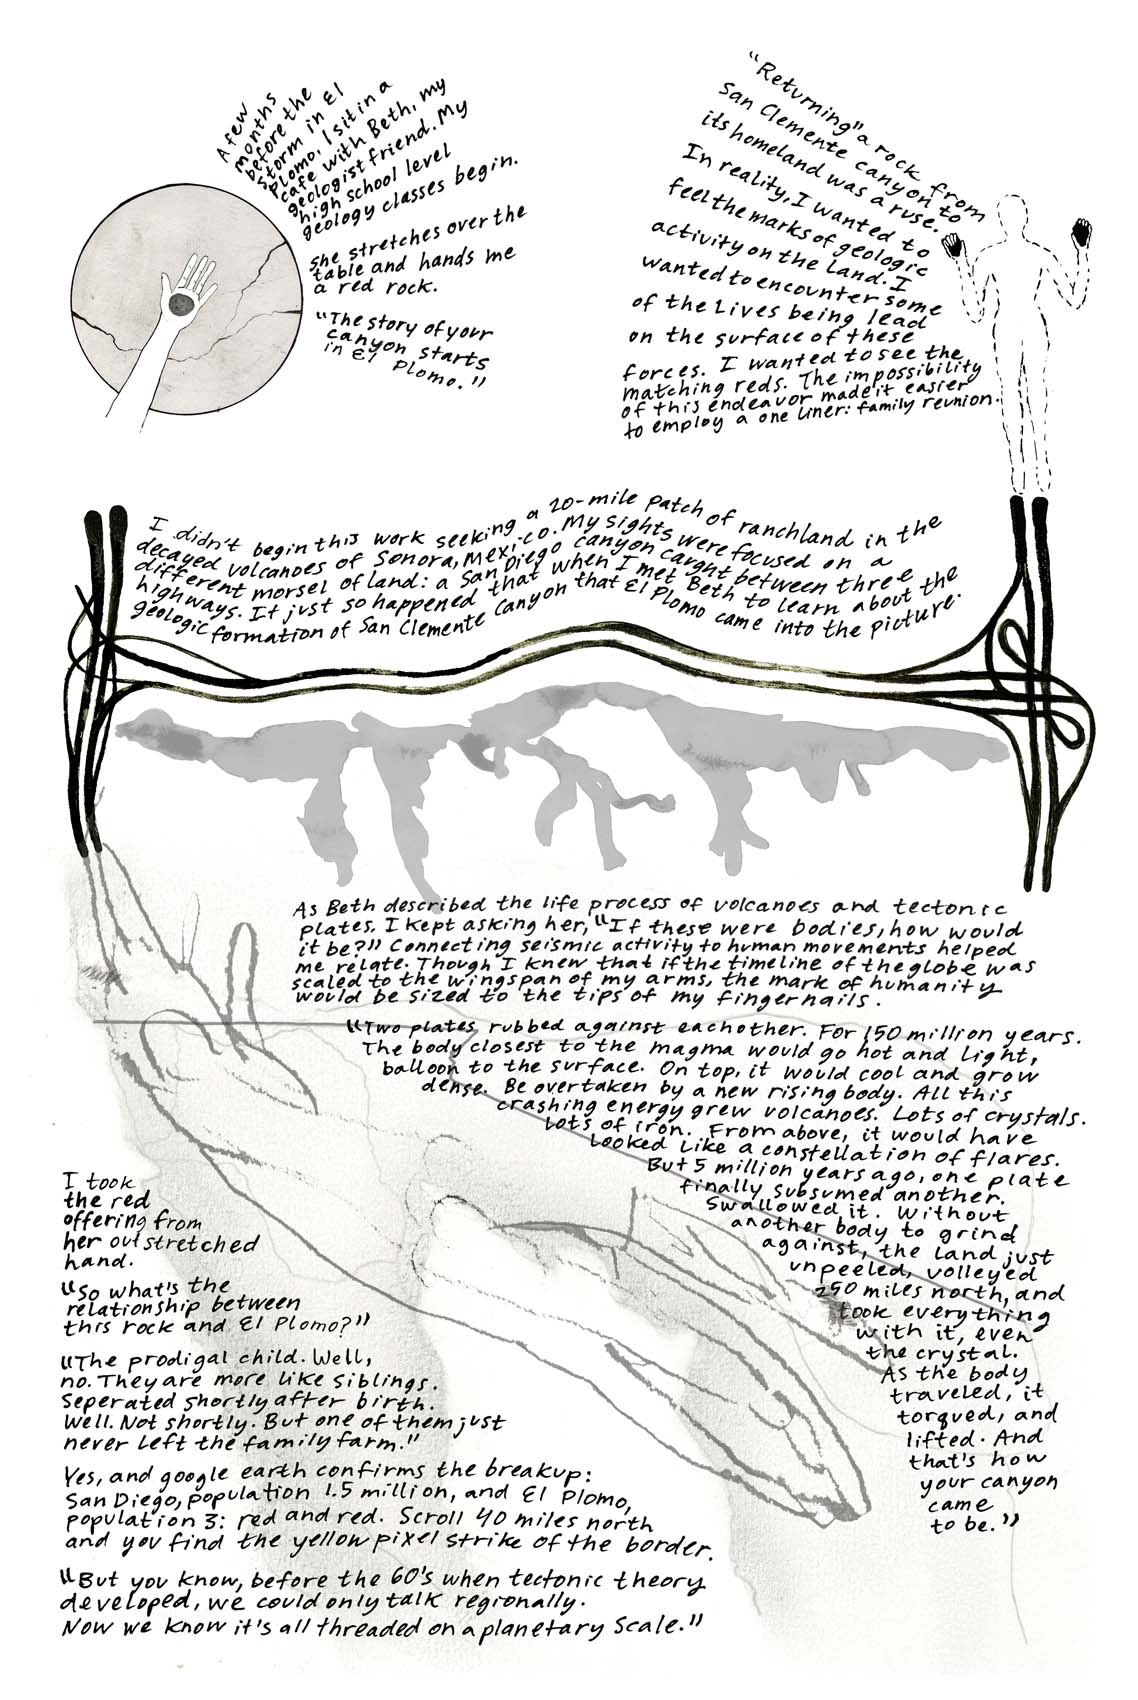 A few
months
before the
storm in El
Plomo, I sit in a
cafe with Beth, my
geologist friend. My
high school level
geology classes begin.
She stretches over the
table and hands me
a red rock.
"The story of your
canyon starts
in El Plomo."
"Returning" a rock from
San Clemente canyon to
its homeland was a ruse.
In reality, I wanted to
feel the marks of geologic
activity on the land. I
wanted to encounter some
of the Lives being lead
on the surface of these
forces. I wanted to see the
matching reds. The impossibility
of this endeavor made it easier
to employ a one liner: family reunion.
I didn't begin this work seeking a 20-mile patch of ranchland in the
decayed volcanoes of Sonora, Mexico. My sights were focused on a
different morsel of land: a San Diego canyon caught between three
highways. It just so happened that when I met Beth to learn about the
geologic formation of San Clemente Canyon that El Plomo came into the picture.
As Beth described the life process of volcanoes and tectonic
plates. I kept asking her, "If these were bodies, how would
it be?" Connecting seismic activity to human movements helped
me relate. Though I knew that if the timeline of the globe was
scaled to the wingspan of my arms, the mark of humanity
would be sized to the tips of my fingernails.
"Two plates rubbed against eachother. For 150 million years.
The body closest to the magma would go hot and light,
balloon to the surface. On top, it would cool and grow
dense. Be overtaken by a new rising body. All this
crashing energy grew volcanoes. Lots of crystals.
Lots of iron. From above, it would have
Looked Like a constellation of flares.
But 5 million years ago, one plate
finally subsumed another.
Swallowed it. Without
another body to grind
against, the land just
unpeeled, volleyed
250 miles north, and
took everything
with it, even
the crystal.
As the body
traveled, it
torqued, and
lifted. And
that's how
your canyon
came
to be."
I took
the red
offering from
her outstretched
hand.
"So what's the
relationship between
this rock and El Plomo?"
"The prodigal child. Well,
no. They are more like siblings.
Seperated shortly after birth.
Well. Not shortly. But one of them just
never left the family farm."
Yes, and google earth confirms the breakup:
San Diego, population 1.5 million, and El Plomo,
population 3: red and red. Scroll 40 miles north
and you find the yellow pixel strike of the border.
"But you know, before the 60's when tectonic theory
developed, we could only talk regionally.
Now we know it's all threaded on a planetary Scale."